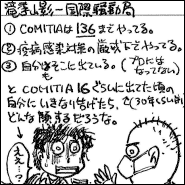 ①COMITIAは136までやってる。
②疫病感染対策の厳戒下でやってる。
③自分もそこに出ている。(プロにはなってない)
とCOMITIA16ぐらいに出てた頃の
自分にいきなり告げたら、(30年くらい前)
どんな顔するだろうな。
ええ…?